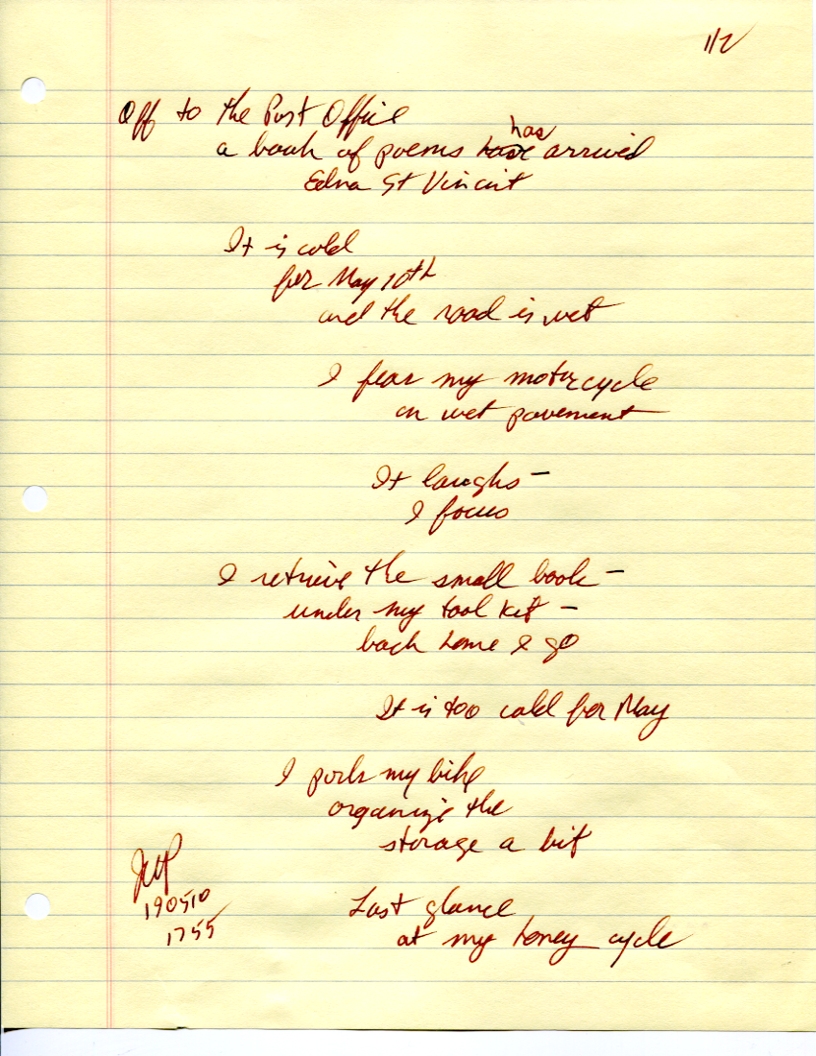 1/2
Off to the Post Office
has
a book of poems have arrived
Edna St Vincent
It is cold
for May 10th
and the road is wet
I fear my motorcycle
on wet pavement
It laughs –
I focus
I retrieve the small book –
under my tool kit –
back home I go
It is too cold for May
I park my bike
organize the
storage a bit
Last glance
at my honey cycle
190510
1755